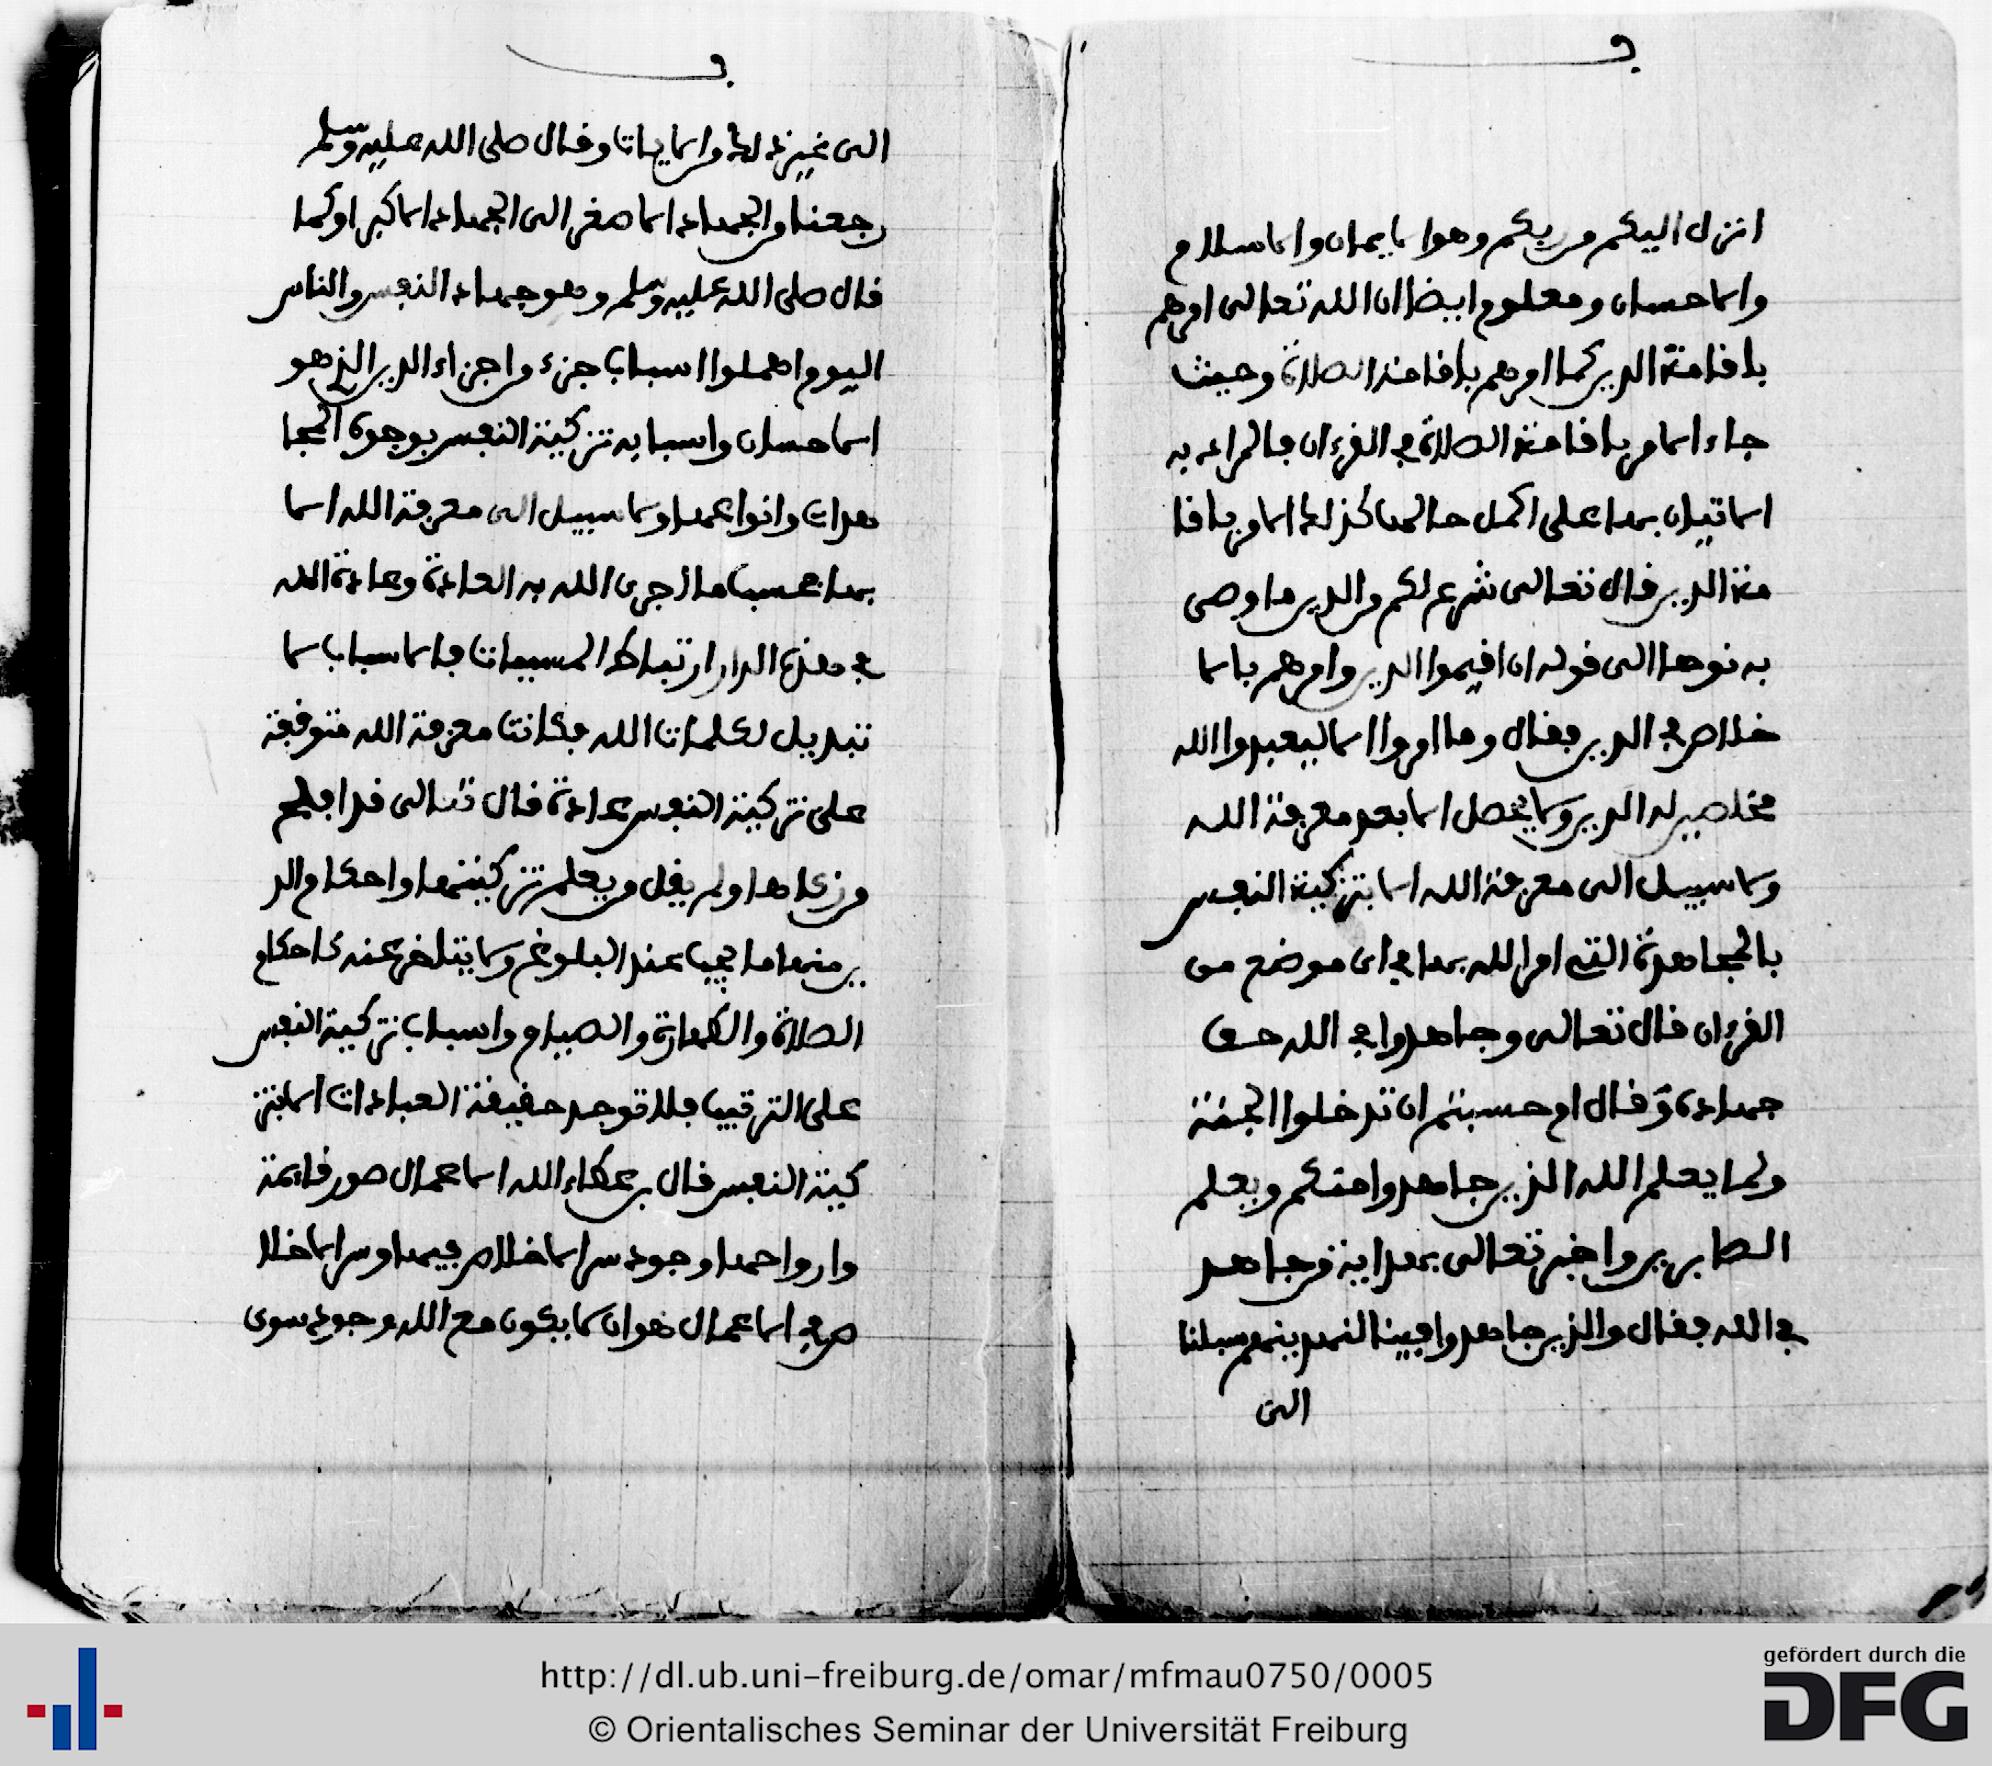 انزل اليكم من ربكم وهو الايمان والاسلام
والاحسان ومعلوم ايضا ان الله تعالى امرهم
باقامة الدين كما امرهم باقامة الصلاة وحيث
جاء الامر باقامة الصلاة في القرءان فالمراد به
الاتيان بها على اكمل حالها كذلك الامر باقا
مة الدين قال تعالى شرع لكم من الدين ما وصى
به نوحا الى قوله ان اقيموا الدين وامرهم بالا
خلاص في الدين فقال وما امروا الا ليعبدوا الله
مخلصين له الدين ولا يحصل الا بعد معرفة الله
ولا سبيل الى معرفة الله الا بتزكية النفس
بالمجاهدة التي امر الله بها في اى موضع من
القرءان قال تعالى وجاهدوا في الله حق
جهاده وقال ام حسبتم ان تدخلوا الجنة
ولما يعلم الله الذين جاهدوا منكم ويعلم
الصابرين واخبر تعالى بهداية من جاهد
في الله فقال والذين جاهدوا فينا لنهدينهم سبلنا
الى
الى غير ذلك من الايات وقال صلى الله عليه وسلم
رجعنا من الجهاد الاصغر الى الجهاد الاكبر او كما
قال صلى الله عليه وسلم وهو جهاد النفس والناس
اليوم اهملوا اسباب جزء من اجزاء الدين الذي هو
الاحسان واسبابه تزكية النفس بوجوه المجا
هدات وانواعها ولا سبيل الى معرفة الله الا
بها بحسب ما اجرى الله به العادة وعادة الله
في هذه الدار ارتباط المسببات بالاسباب لا
تبديل لكلمات الله فكانت معرفة الله متوقفة
على تزكية النفس عادة قال تعالى قد افلح
من زكاها ولم يقل من يعلم تزكيتها واحكام الد
ين منها ما يجب عند البلوغ ولا يتاخر عنه كاحكام
الصلاة والطهارة والصيام واسباب تزكية النفس
على الترتيب فلا توجد حقيقة العبادات الا بتز
كية النفس قال بن عطاء الله الاعمال صور قائمة
وارواحها وجود سر الاخلاص فيها وسر الاخلا
ص في الاعمال هو ان لا يكون مع الله وجود سوى
http://dl.ub.uni-freiburg.de/omar/mfmau0750/0005
© Orientalisches Seminar der Universität Freiburg
gefördert durch die
DFG